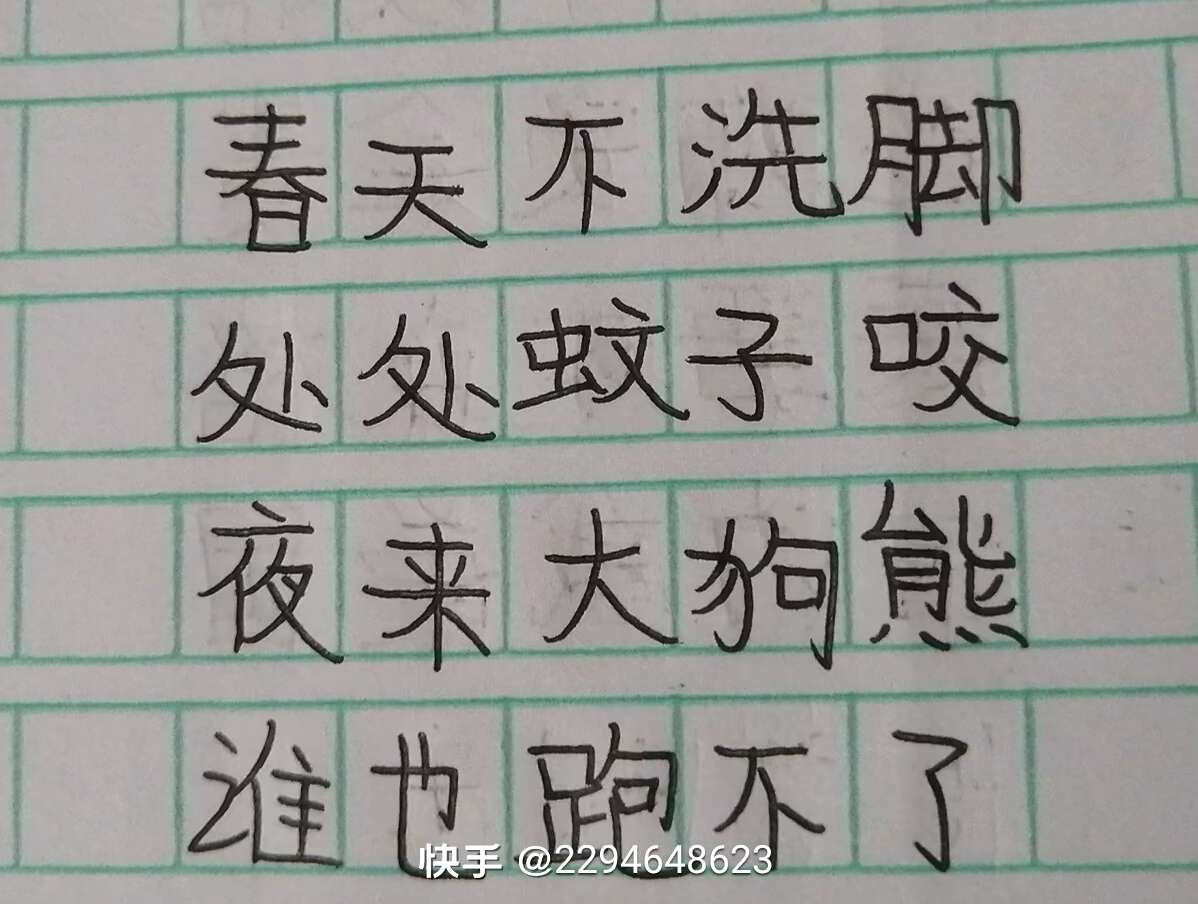 春天不洗脚
处处蚊子咬
夜来大狗熊
谁也跑不了
快手 @2294648623